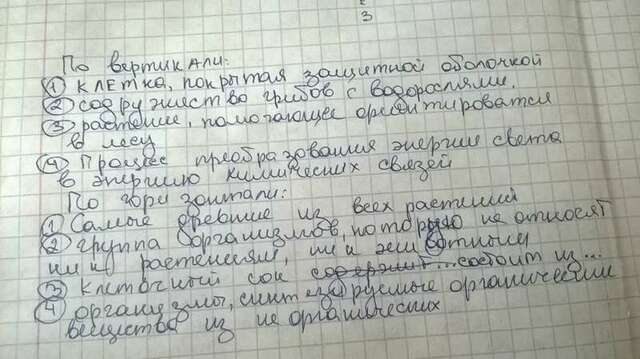 3
По вертикали:
① клетка, покрытая защитной оболочкой
② содружество грибов с водорослями.
③ растение, помогающее ориентироватся
в лесу
④ Процес преобразования энергии света
в энергию химических связей
По горизонтали:
① Самые древние из всех растений
② группа организмов, которую не относят
ни к растениям, ни к животным
③ Клеточный сок содержит... состоит из...
④ организмы, синтезируемые органические
вещества из не органических